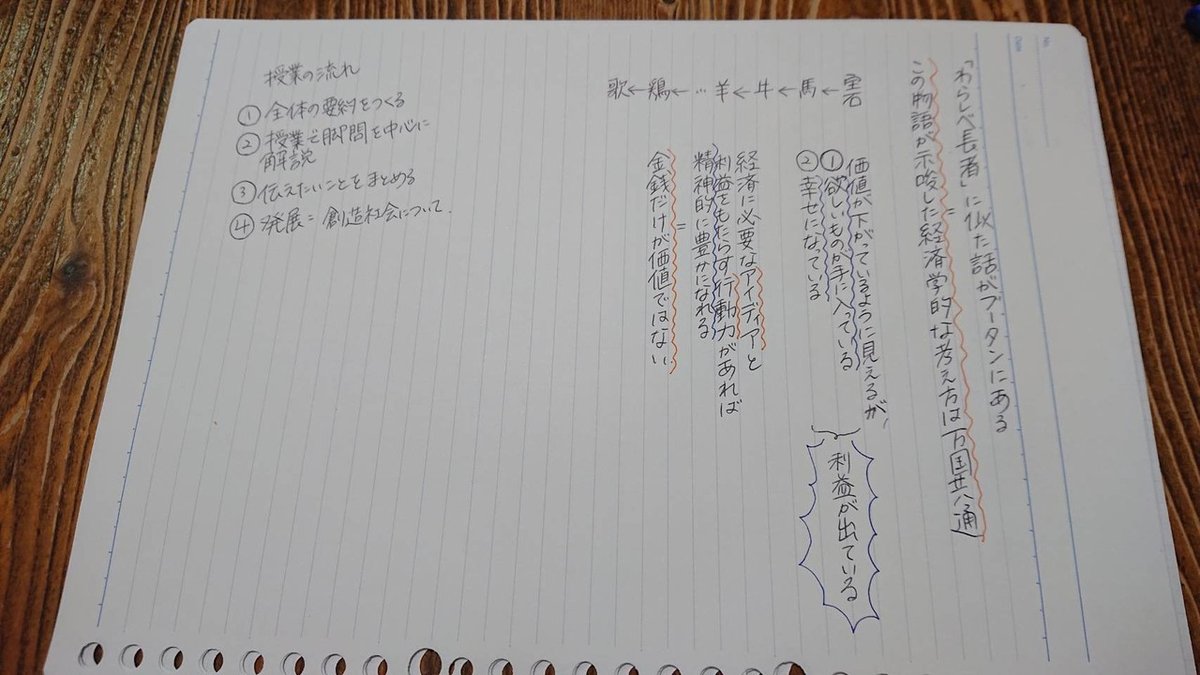 「わらしべ長者」に似た話がブータンにある
この物語が示唆した経済学的な考え方は万国共通
宝石
↓
馬
↓
牛
↓
羊
…
↓
鶏
↓
歌
価値が下がっているように見えるが、
①欲しいものが手に入っている
②幸せになっている
利益が出ている
経済に必要なアイディアと
利益をもたらす行動力があれば
精神的に豊かになれる
=
金銭だけが価値ではない
授業の流れ
①全体の要約をつくる
②授業で脚問を中心に
解説
③伝えたいことをまとめる
④発展=創造社会について.